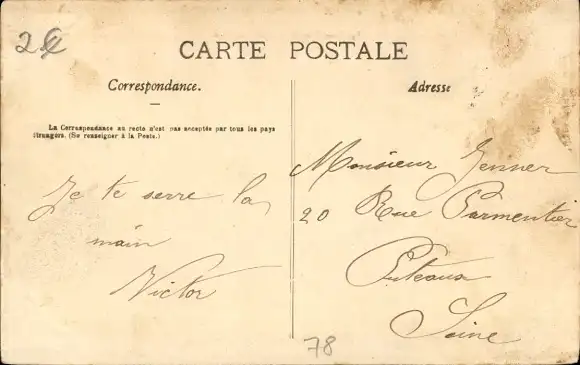 2€
CARTE POSTALE
Correspondance.
Adresse
La Correspondance au recto n'est pas acceptée par tous les pays
étrangers. (Se renseigner à la Poste.)
Je te serre la
main
Victor
Monsieur Jenner
20 Rue Parmentier
Puteaux
Seine
78